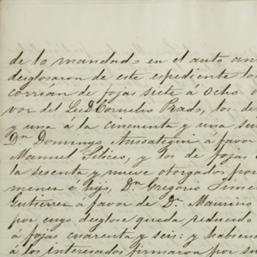 de lo mandado en el auto an
desglosaron de este expediente los
corrian de fojas siete á ocho
vor del Cornelio Prado, los de
y una á la cincuenta y una
Dn Domingo a favor
Manuel y los de fojas
la sesenta y nueve otorgados por
menor é hijo, Dn Gregorio
Gutierrez á favor de Dn Mauino
por cuyo desglose queda reducido
á fojas cuarenta y seis: y
á los interesados firmaron por su